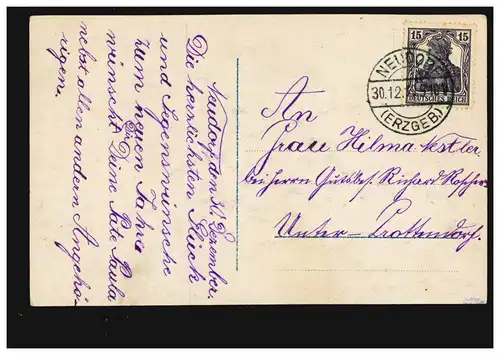 Neudorf, den 30. Dezember.
Die herzlichsten Glück
und Segenswünsche
zum neuen Jahre
wünscht Dir Deine Pate Paula
nebst allen andern Angehö-
rigen.
15 15
DEUTSCHES REICH
NEUDORF
30.12.
(ERZGEB.)
An
Frau Hilma Nestler
bei Herrn Gutsbes. Richard Roscher
Unter-Crottendorf.